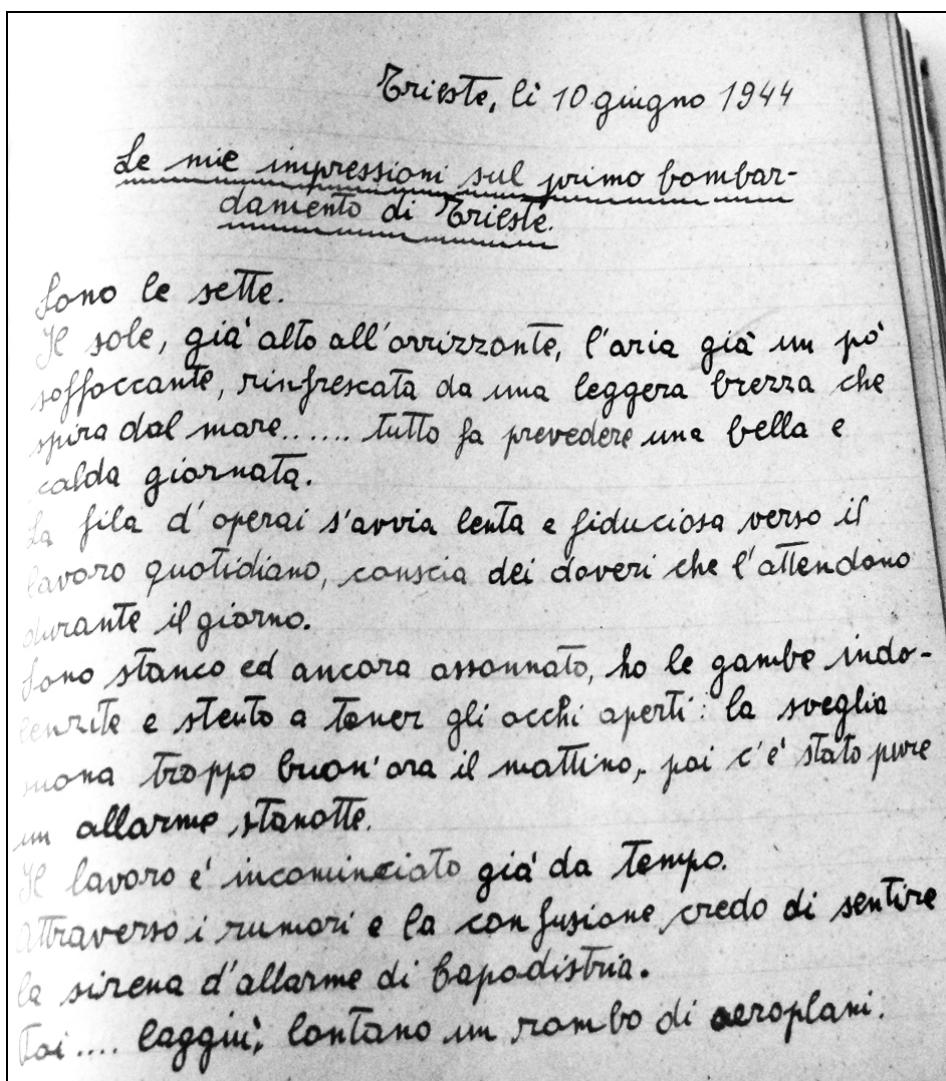 Trieste, li 10 giugno 1944
Le mie impressioni sul primo bombar-
damento di Trieste.
Sono le sette.
Il sole, già alto all'orrizzonte, l'aria già un pò
soffoccante, rinfrescata da una leggera brezza che
spira dal mare...... tutto fa prevedere una bella e
calda giornata.
La fila d'operai s'avvia lenta e fiduciosa verso il
lavoro quotidiano, conscia dei doveri che l'attendono
durante il giorno.
Sono stanco ed ancora assonnato, ho le gambe indo-
lenzite e stento a tener gli occhi aperti: la sveglia
suona troppo buon'ora il mattino, poi c'è stato pure
un allarme stanotte.
Il lavoro è incominciato già da tempo.
Attraverso i rumori e la confusione credo di sentire
la sirena d'allarme di Capodistria.
Poi.... laggiù, lontano un rombo di aeroplani.